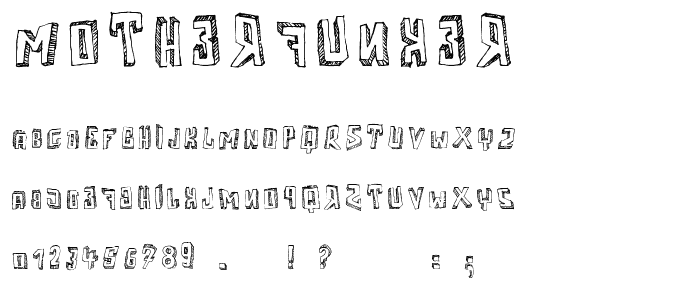 MOTHERFUNKER
ABCDEFGHIJKLMNOPQRSTUVWXYZ
ABCDEFGHIJKLMNOPQRSTUVWXYZ
0123456789 . ! ? : ;